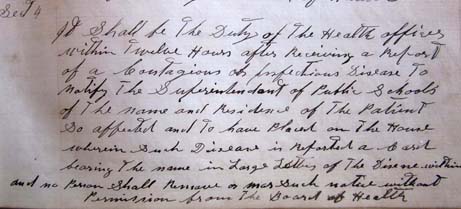 Sect 4
It Shall be The Duty of The Health officer
within Twelve Hours after Receiving a Report
of a Contagious or Infectious Disease To
notify The Superintendant of Public Schools
of The name and Residence of The Patient
So affected and To have Placed on The House
wherein Such Disease is Reported a Card
bearing The name in Large Letters of The Disease within
and no Person Shall Remove or mar Such notice without
Permission from The Board of Health